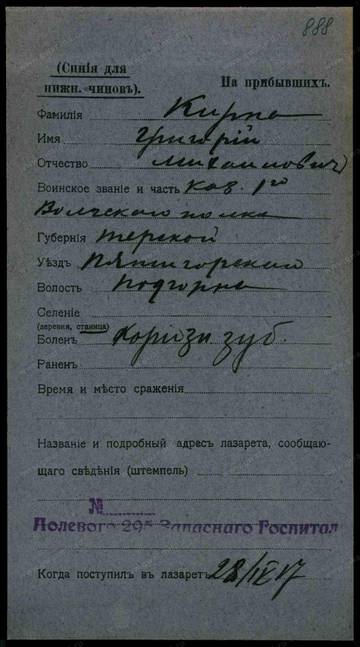 888
(Синія для
нижн. чиновъ).
На прибывшихъ.
Фамилія Кирпа
Имя Григорій
Отчество Михайлович
Воинское званіе и часть каз. 1го
Волгскаго полка
Губернія Терской
Уѣздъ Пятигорский
Волость Подгорна
Селеніе
(деревня, станица)
Боленъ зуб.
Раненъ
Время и мѣсто сраженія
Названіе и подробный адресъ лазарета, сообщаю-
щаго свѣдѣнія (штемпель)
№
Полевого 295 Запаснаго Госпитал
Когда поступилъ въ лазаретъ 28/IX 17